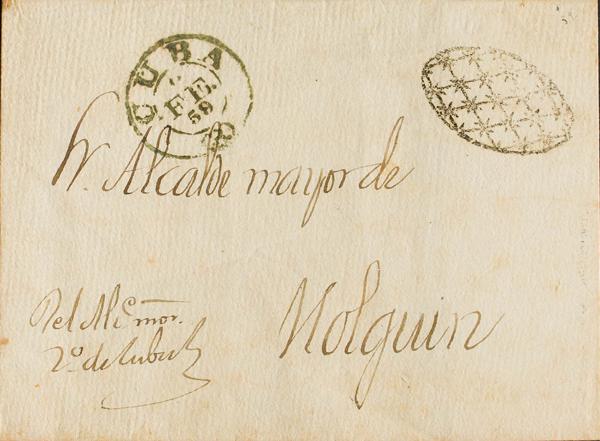 CUBA
FE.
59
Sr. Alcalde mayor de
Holguin
Del Alc.e mor.
2.o de Cuba